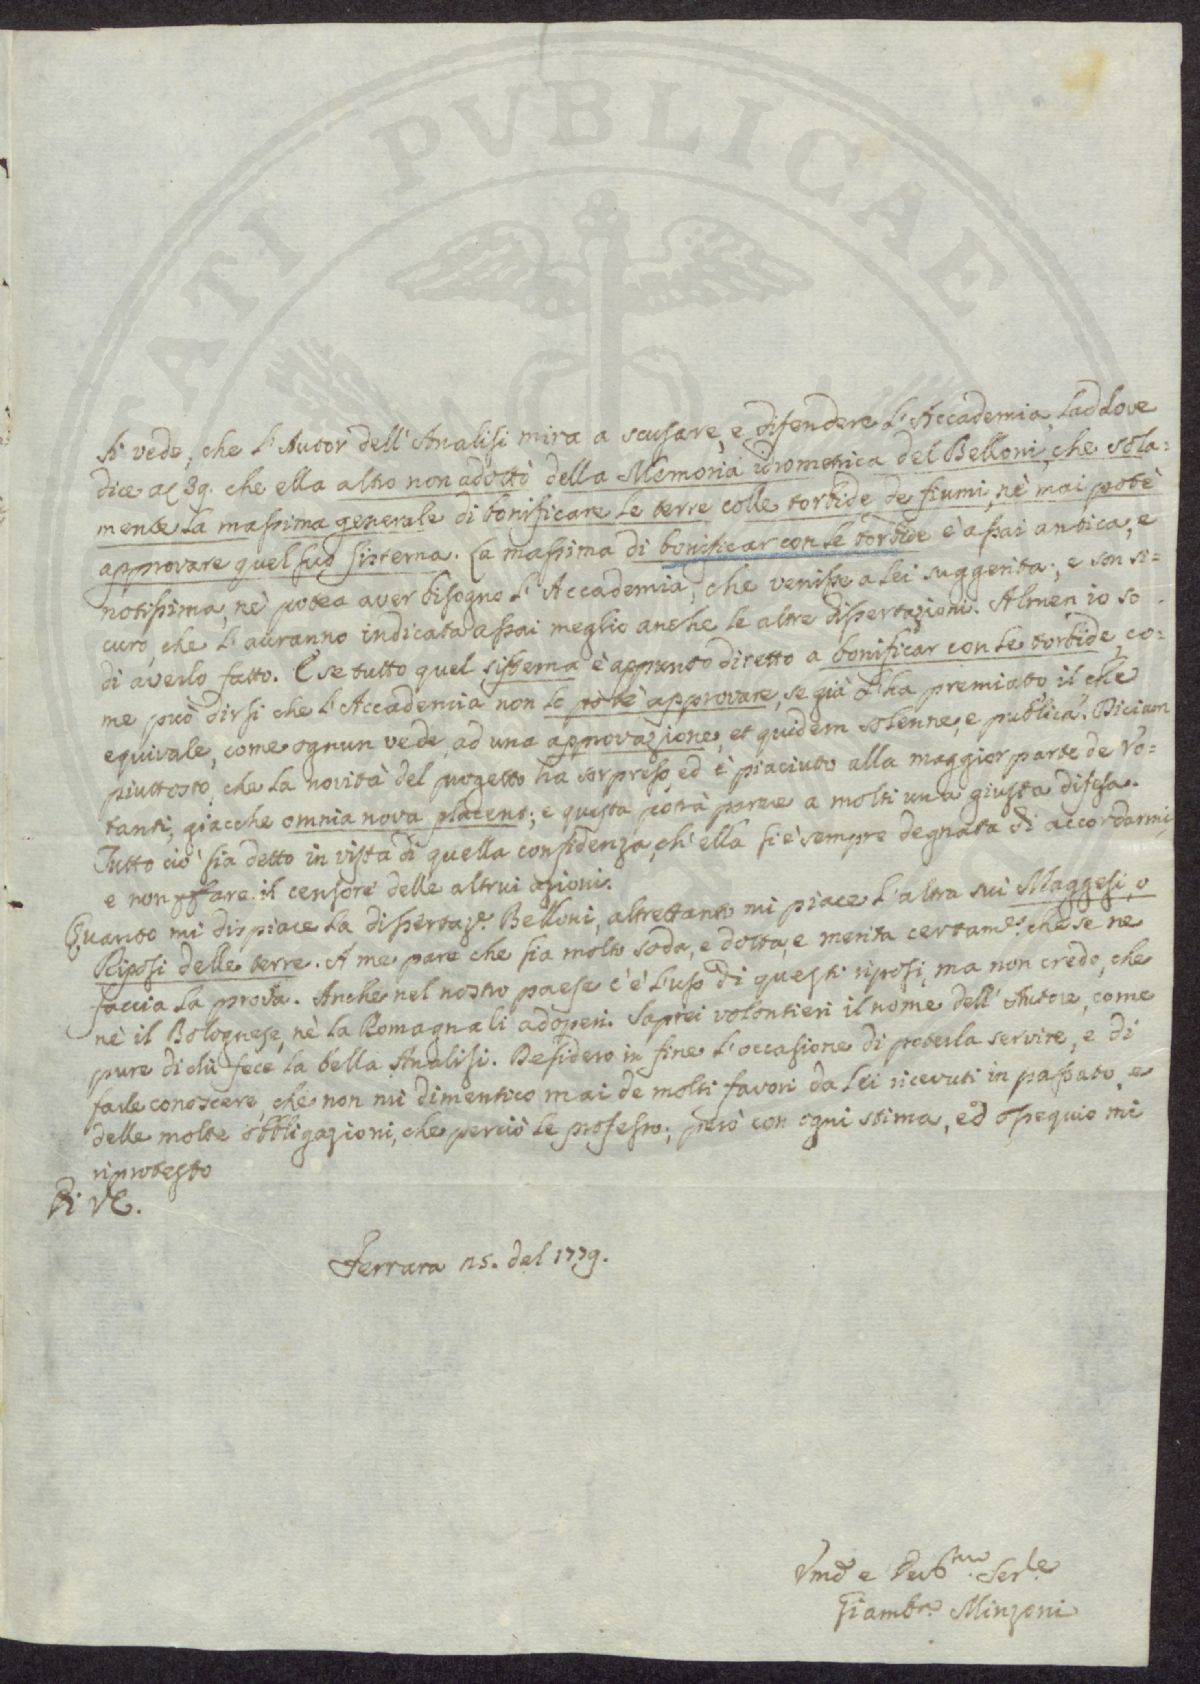 PVBLICAE
Si vede, che l'Autor dell'Analisi mira a scusare, e difendere l'Accademia, laddove
dice a c. 39. che ella altro non adottò della Memoria idrometrica del Belloni, che sola-
mente la massima generale di bonificare le terre colle torbide de fiumi, nè mai potè
approvare quel suo sistema. La massima di bonificar con le torbide è assai antica, e
notissima, nè potea aver bisogno l'Accademia, che venisse a lei suggerita; e son si-
curo, che l'auranno indicata assai meglio anche le altre dissertazioni. Almen io so
di averlo fatto. E se tutto quel sistema è appunto diretto a bonificar con le torbide, co-
me può dirsi che l'Accademia non lo potè approvare, se già l'ha premiato il che
equivale, come ognun vede, ad una approvazione, et quidem solenne, e publica? Diciam
piuttosto, che la novità del progetto ha sorpreso ed è piaciuto alla maggior parte de Vo-
tanti, giacche omnia nova placent; e questa potrà parere a molti una giusta difesa.
Tutto ciò sia detto in vista di quella confidenza, ch'ella si è sempre degnata di accordarmi,
e non fare il censore delle altrui azioni.
Quanto mi dispiace la dissertaz.e Belloni, altrettanto mi piace l'altra sui Maggesi, o
Riposi delle terre. A me pare che sia molto soda, e dotta, e merita certam.e che se ne
faccia la prova. Anche nel nostro paese c'è l'uso di questi riposi, ma non credo, che
nè il Bolognese, nè la Romagna li adoperi. Saprei volontieri il nome dell'Autore, come
pure di chi fece la bella Analisi. Desidero in fine l'occasione di poterla servire, e di
farle conoscere, che non mi dimentico mai de molti favori da lei ricevuti in passato, e
delle molte obbligazioni, che perciò le professo; però con ogni stima, ed ossequio mi
riprotesto
Di VE.
Ferrara 15. del 1779.
Vmo e Devmo Ser.le
Giamb.a Minzoni